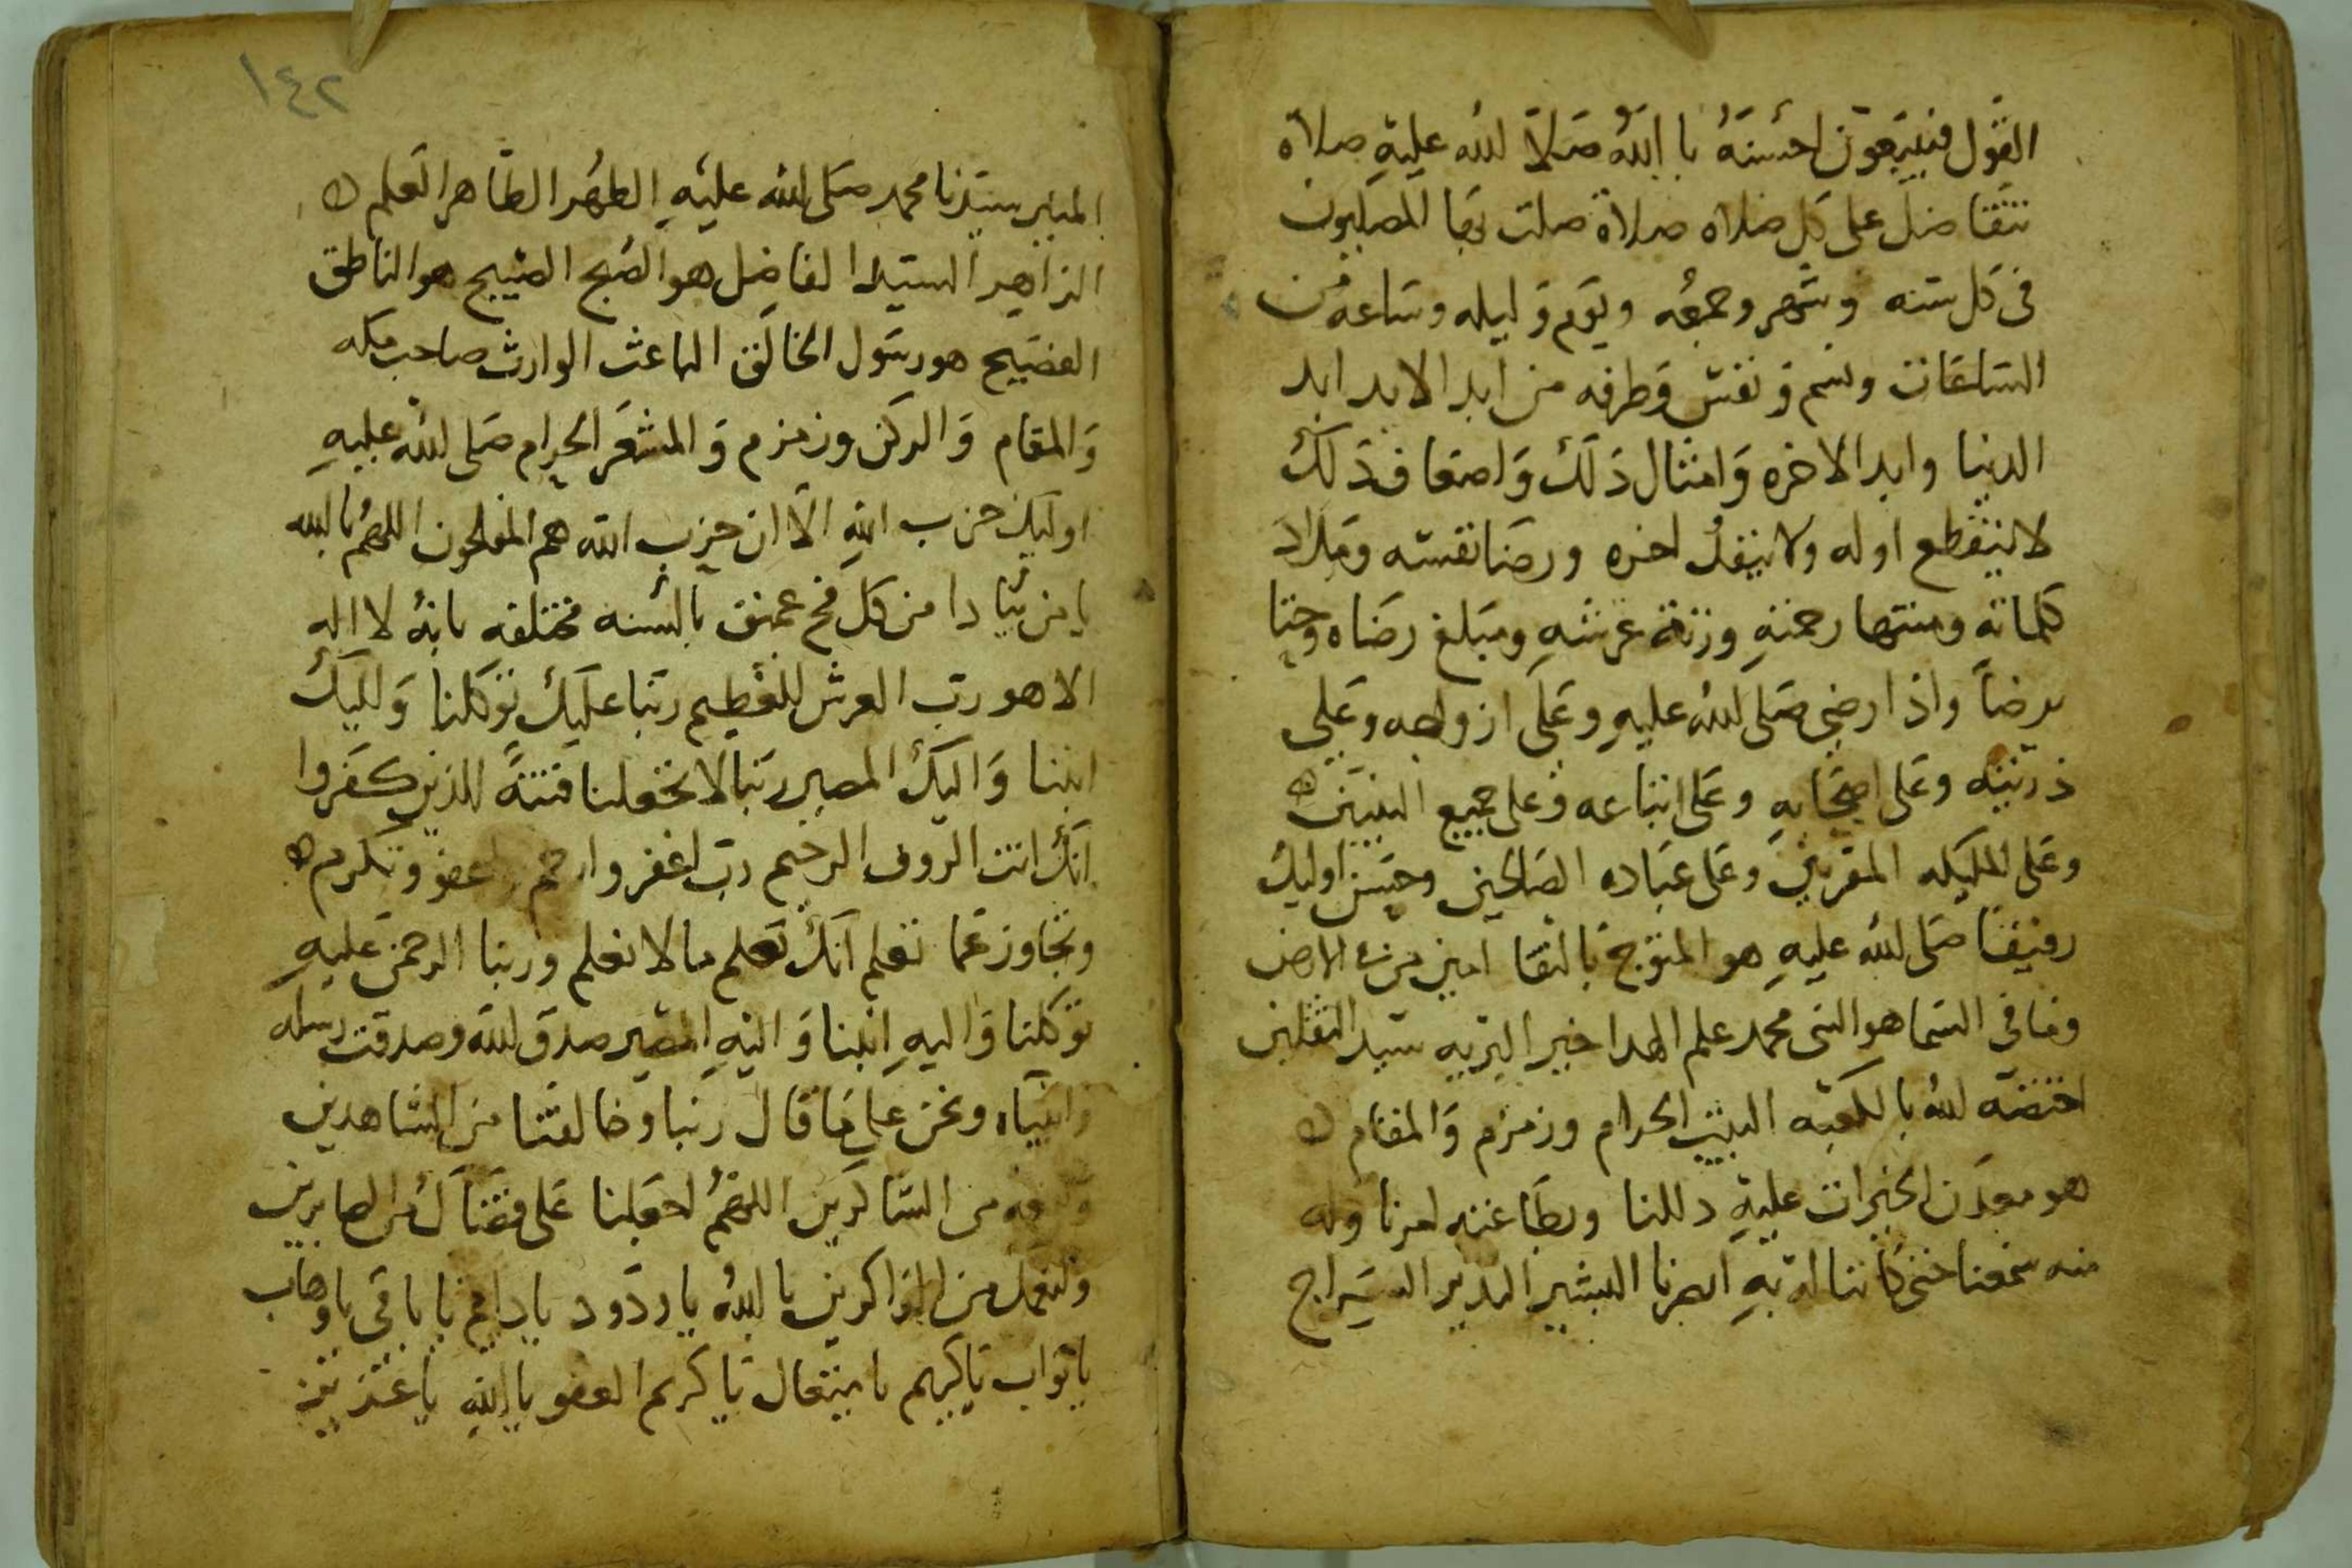 القول فيتبعون احسنه يا الله صلا الله عليه صلاه
تتفاضل على كل صلاه صلاة صلت بها المصليون
فى كل سنه وشهر وجمعه ويوم وليله وساعه من
الساعات ونسم ونفس وطرفه من ابد الابد ابد
الدنيا وابد الاخره وامثال ذلك واضعاف ذلك
لا ينقطع اوله ولا ينفد اخره ورضا نفسه ومداد
كلماته ومنتها رحمته وزنة عرشه ومبلغ رضاه وحتا
يرضا واذا رضى صلى الله عليه وعلى ازواجه وعلى
ذريته وعلى اصحابه وعلى اتباعه وعلى جميع النبيين
وعلى المليكه المقربين وعلى عباده الصالحين وحسن اوليك
رفيقا صلى الله عليه هو المتوج بالتقا امين من فى الارض
وما فى السما هو النبى محمد علم الهدا خير البريه سيد الثقلين
اختصه الله بالكعبه البيت الحرام وزمزم والمقام
هو معدن الخيرات عليه دللنا وبطاعته امرنا وله
منه سمعنا حتى كاننا له به ابصرنا البشير النذير السراج
١٤٢
المنير سيدنا محمد صلى الله عليه الطهر الطاهر العلم
الزاهر السيد الفاضل هو الصبح الصبيح هو الناطق
الفصيح هو رسول الخالق الباعث الوارث صاحب مكه
والمقام والركن وزمزم والمشعر الحرام صلى الله عليه
اوليك حزب الله الا ان حزب الله هم المفلحون اللهم يا الله
يا من ينادا من كل فج عميق بالسنه مختلفه يا الله لا اله
الا هو رب العرش العظيم ربنا عليك توكلنا واليك
انبنا واليك المصير ربنا لا تجعلنا فتنة للذين كفروا
انك انت الروف الرحيم رب اغفر وارحم واعفو وتكرم
وتجاوز عما تعلم انك تعلم ما لا نعلم وربنا الرحمن عليه
توكلنا واليه انبنا واليه المصير صدق الله وصدقت رسله
وانبياه ونحن على ما قال ربنا وخالقنا من الشاهدين
من الشاكرين اللهم اجعلنا على قضاك من الصابرين
من الذاكرين يا الله يا ودود يا دايم يا باقى يا وهاب
يا تواب يا كريم يا متعال يا كريم العفو يا الله يا عزيز